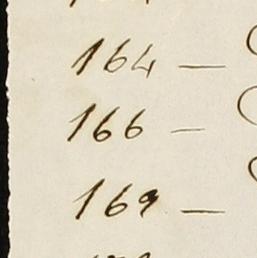 164 —
166 —
169 —